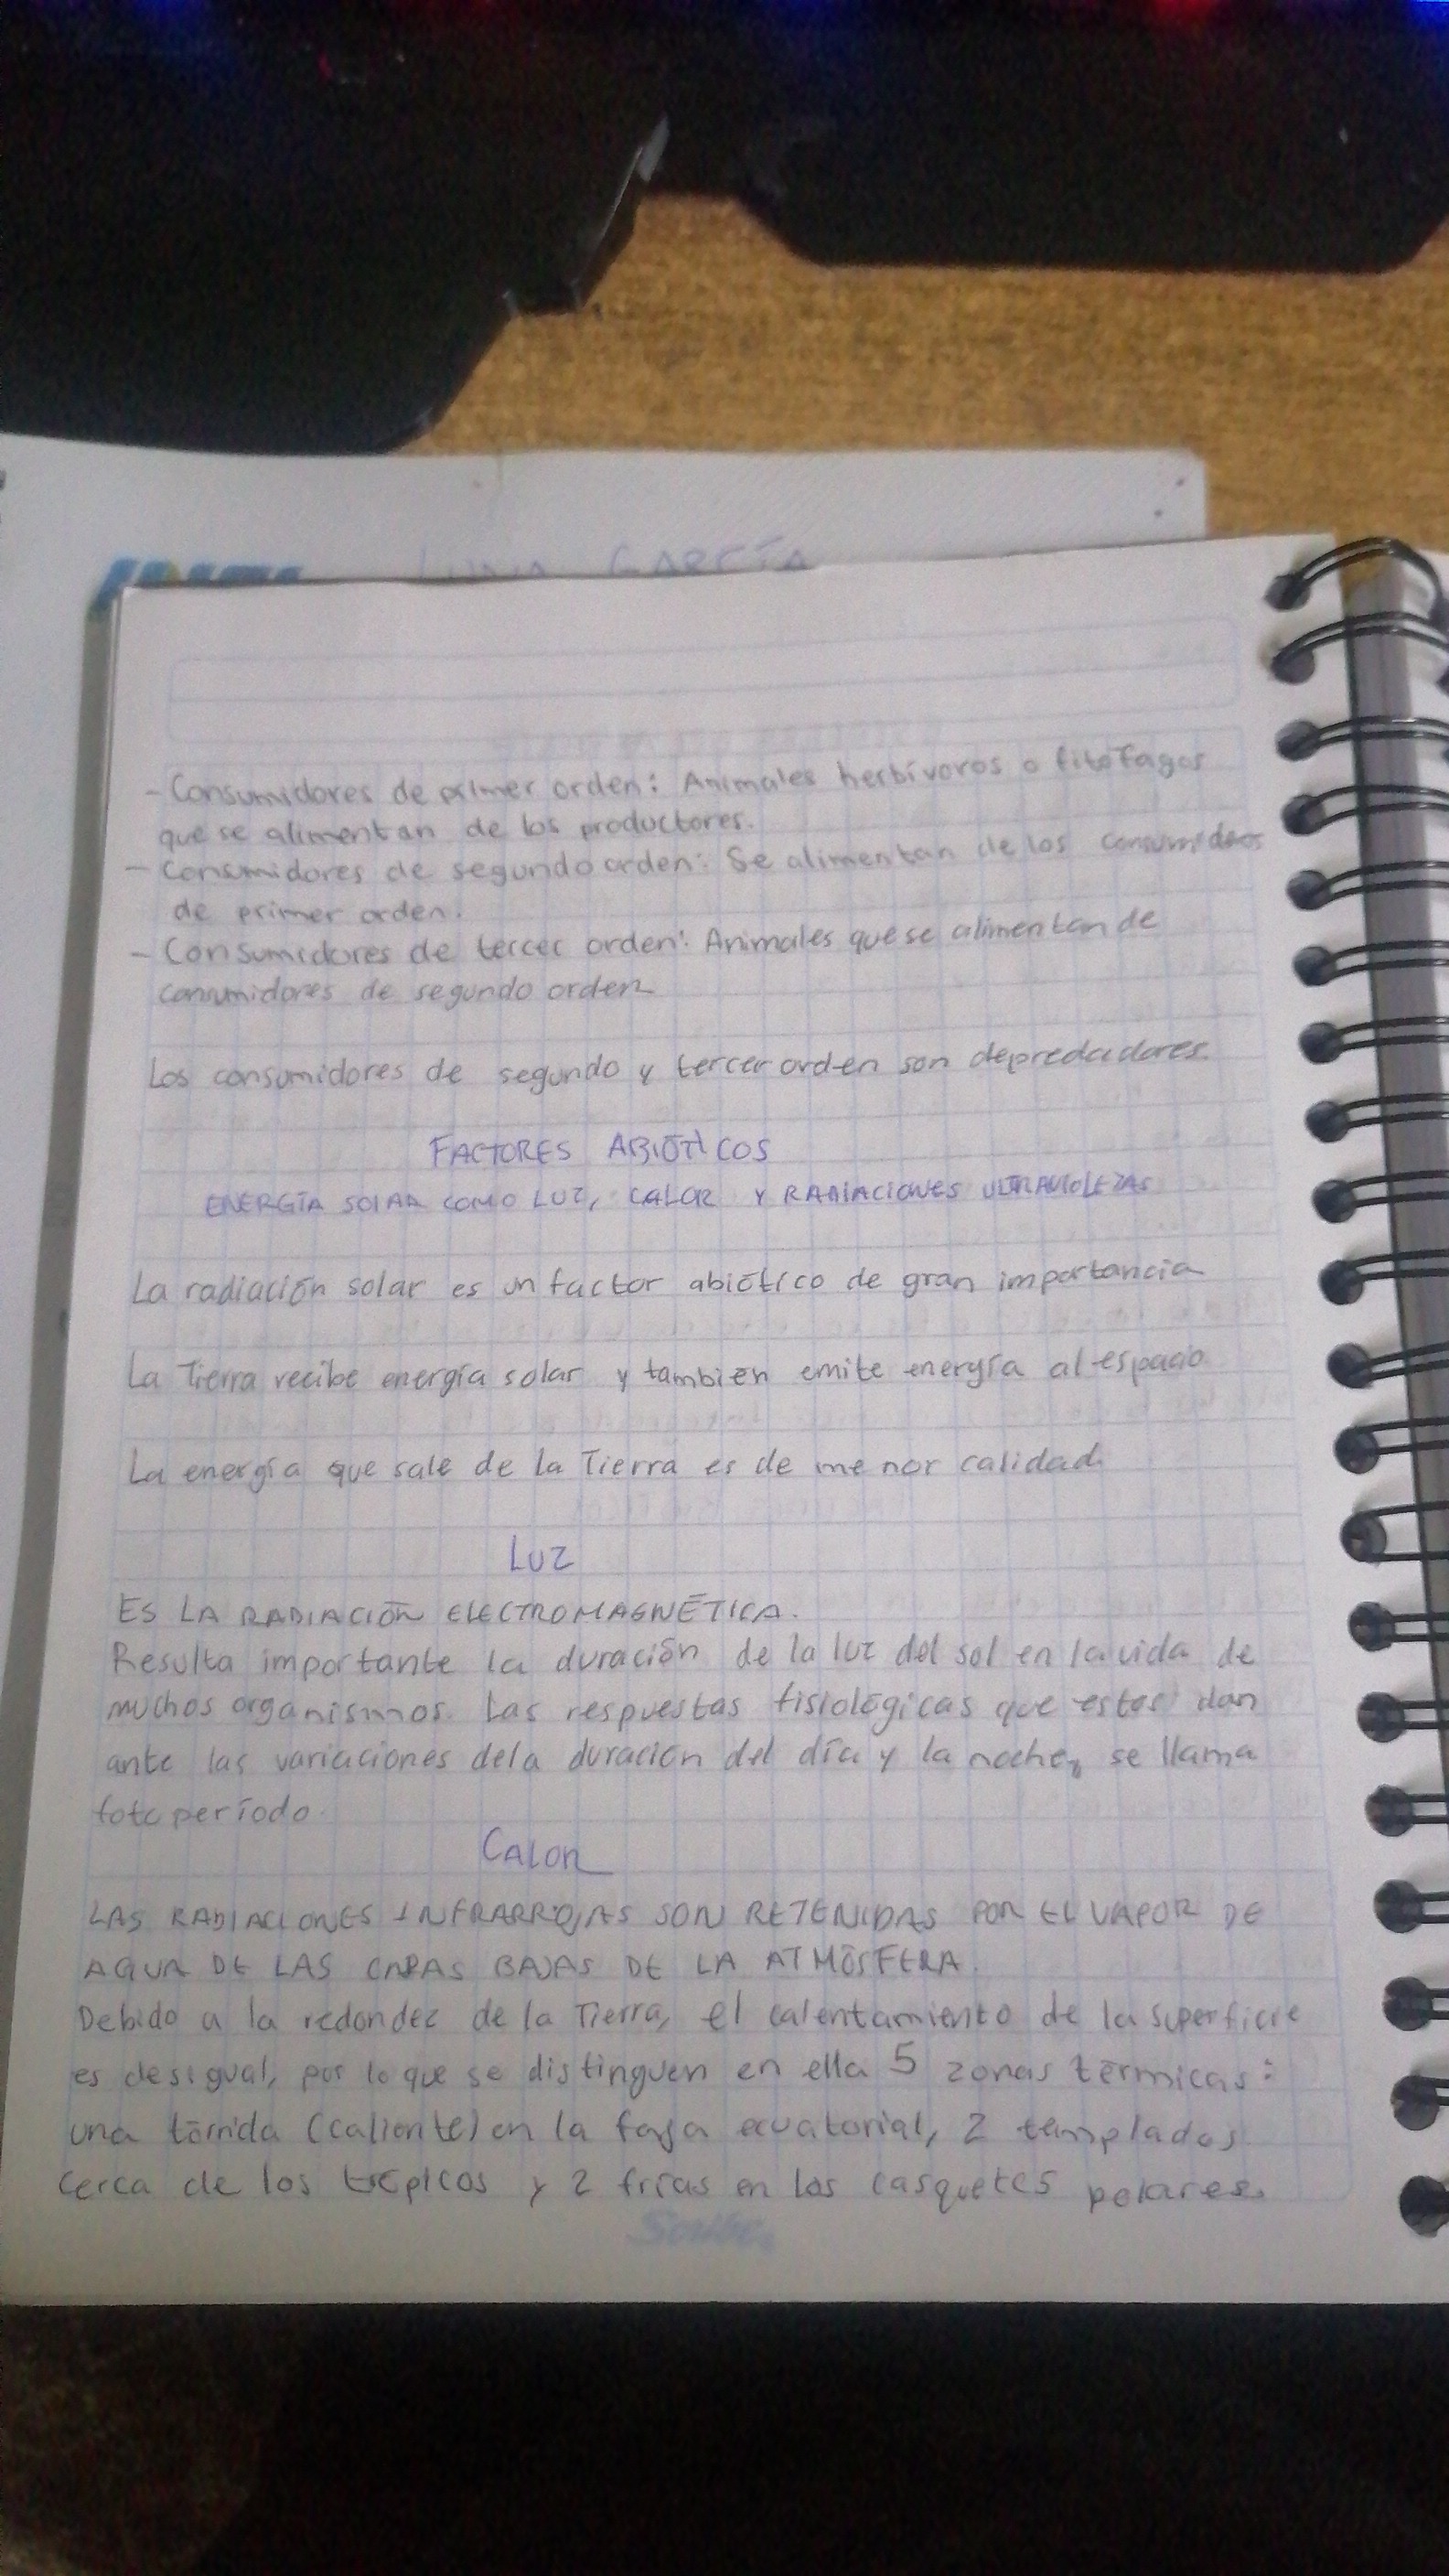 LUNA GARCÍA
- Consumidores de primer orden: Animales herbívoros o fitófagos
que se alimentan de los productores.
- Consumidores de segundo orden: Se alimentan de los consumidores
de primer orden.
- Consumidores de tercer orden: Animales que se alimentan de
consumidores de segundo orden
Los consumidores de segundo y tercer orden son depredadores.
FACTORES ABIÓTICOS
ENERGÍA SOLAR COMO LUZ, CALOR Y RADIACIONES ULTRAVIOLETAS
La radiación solar es un factor abiótico de gran importancia
La Tierra recibe energía solar y también emite energía al espacio
La energía que sale de la Tierra es de menor calidad.
LUZ
ES LA RADIACIÓN ELECTROMAGNÉTICA.
Resulta importante la duración de la luz del sol en la vida de
muchos organismos. Las respuestas fisiológicas que estos dan
ante las variaciones de la duración del día y la noche, se llama
fotoperíodo.
CALOR
LAS RADIACIONES INFRARROJAS SON RETENIDAS POR EL VAPOR DE
AGUA DE LAS CAPAS BAJAS DE LA ATMÓSFERA.
Debido a la redondez de la Tierra, el calentamiento de la superficie
es desigual, por lo que se distinguen en ella 5 zonas térmicas:
una tórrida (caliente) en la faja ecuatorial, 2 templadas
cerca de los trópicos y 2 frías en los casquetes polares.
Scribe